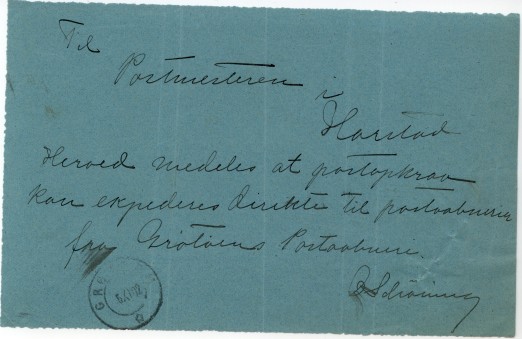 Til
Postmesteren
i
Harstad
Herved medeles at postopkrav
kan expederes direkte til postaabnerier
fra Grøtøens Postaabneri.
B Schöning
GRØ